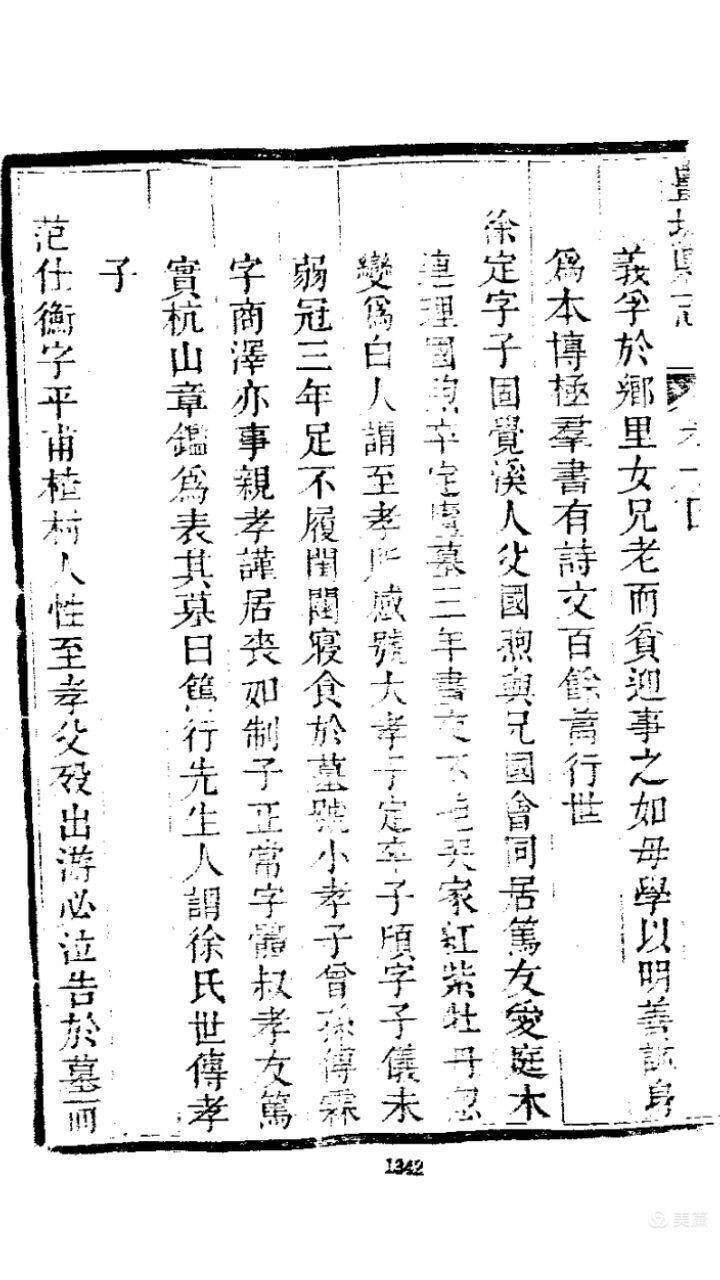 義孚於鄉里女兄老而貧迎事之如母學以明善誠身
爲本博極羣書有詩文百餘篇行世
徐定字子固覺溪人父國煦與兄國會同居篤友愛庭木
連理國煦卒定廬墓三年晝夜不
家紅紫牡丹忽
變爲白人謂至孝所感號大孝子定卒子頃字子儀未
弱冠三年足不履閨閫寢食於墓號小孝子曾孫傳霖
字商澤亦事親孝謹居喪如制子正常字體叔孝友篤
實杭山章鑑爲表其墓曰篤行先生人謂徐氏世傳孝
子
范仕衡字平甫楂村人性至孝父歿出游必泣告於墓而
1342
美篇